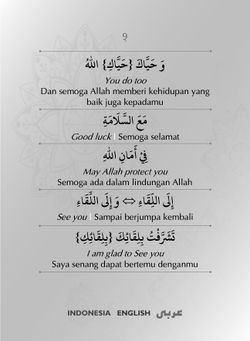 9
وَ حَيَّاكَ {حَيَّاكِ} اللهُ
You do too
Dan semoga Allah memberi kehidupan yang
baik juga kepadamu
مَعَ السَّلَامَةِ
Good luck | Semoga selamat
فِيْ أَمَانِ اللهِ
May Allah protect you
Semoga ada dalam lindungan Allah
إِلَى اللِّقَاءِ ⇔ وَ إِلَى اللِّقَاءِ
See you | Sampai berjumpa kembali
تَشَرَّفْتُ بِلِقَائِكَ {بِلِقَائِكِ}
I am glad to See you
Saya senang dapat bertemu denganmu
INDONESIA ENGLISH عربي